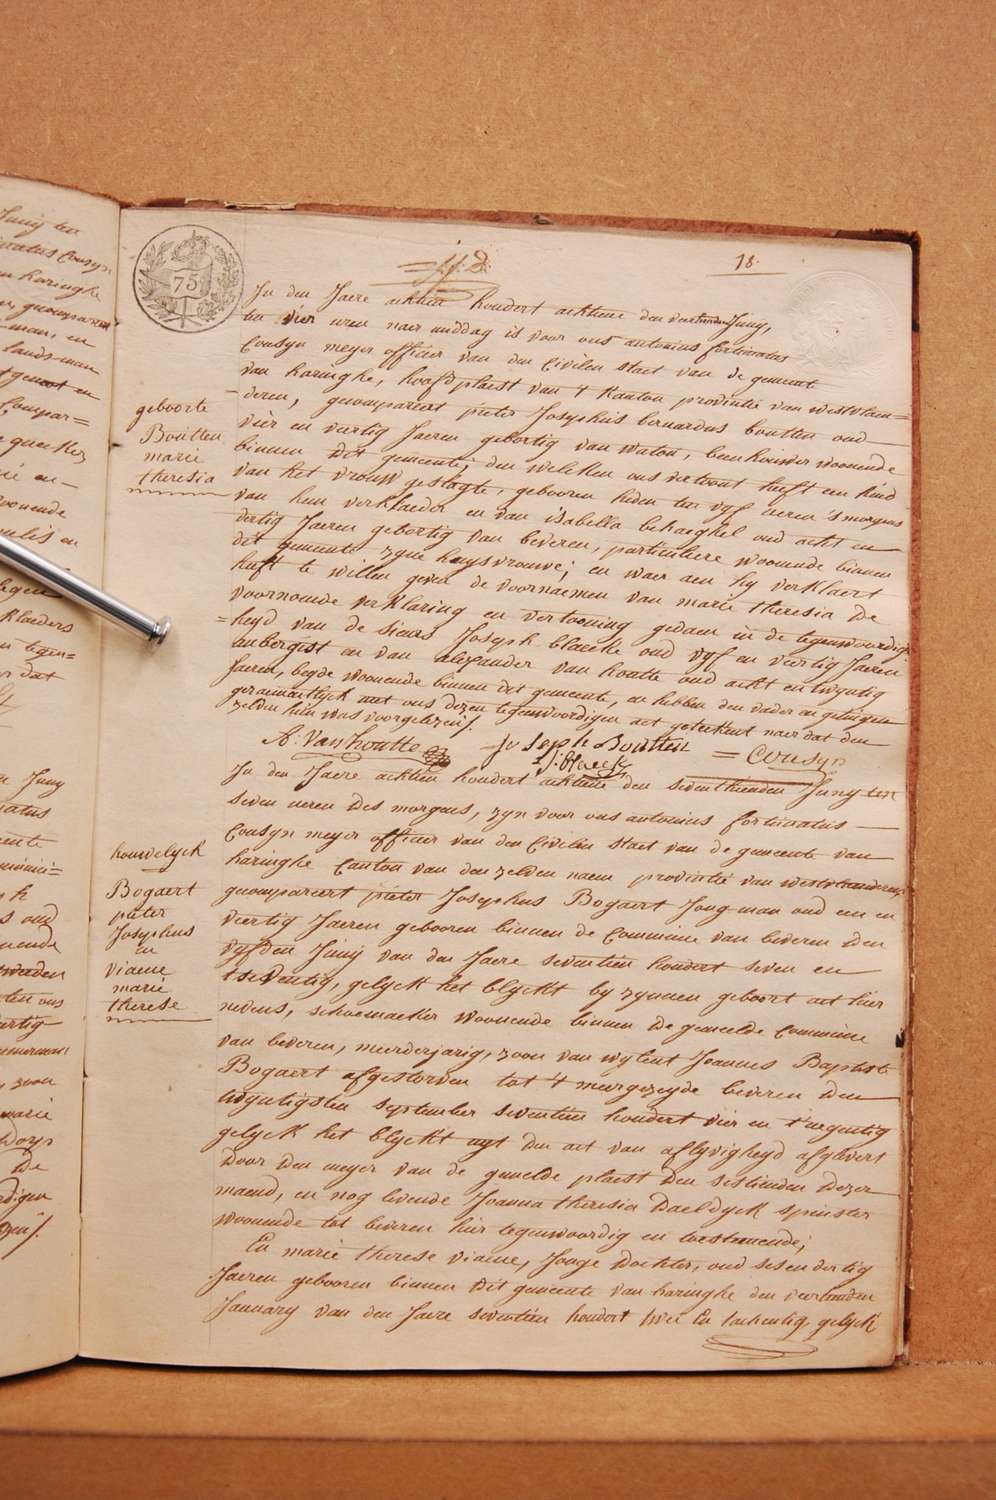 75
18.
geboorte
Boutten
marie
theresia
In den Jaere achtien houdert achtiene den veerthienden Juny,
ten vier uren naer middag is voor ons antonius fortunatus
Cousyn meyer officier van den Civilen staet van de gemeente
van haringhe, hoofdplaest van 't Kanton provintie van westvlaen=
=deren, gecompareert pieter Josephus bernardus boutten oud
vier en viertig Jaeren gebortig van watou, beenhouwer woonende
binnen dit gemeente, den welcken ons vertoont heeft een kind
van het vrouw geslagte, gebooren heden ten vyf ueren 's morgens
van hem verklaeder en van isabella behaeghel oud acht en
dertig Jaeren gebortig van beveren, particuliere woonende binnen
dit gemeente zyne huysvrouwe; en waer aen hy verklaert
heeft te willen geven de voornaemen van marie theresia De
voornoemde verklaring en vertooning gedaen in de tegenwoordig=
=heyd van de sieurs Joseph blaeke oud vyf en viertig Jaeren
aubergist en van alexander van houtte oud acht en twyntig
Jaeren, beyde woonende binnen dit gemeente, en hebben den vader en getuigen
gezaementlyck met ons dezen tegenwoordigen act geteekent naer dat den
zelden hun was voorgelezen /.
A. Vanhoutte Joseph Boutten = Cousyn
J. Blaecke
houwelyck
Bogaert
pieter
Josephus
en
Viaene
marie
therese
In den Jaere achtien houdert achtiene den seventhienden Juny ten
seven ueren des morgens, zyn voor ons antonius fortunatus
Cousyn meyer officier van den Civilen staet van de gemeente van
haringhe Canton van den zelden naem provintie van westvlaenderen,
gecompareert pieter Josephus Bogaert Jongman oud een en
viertig Jaeren gebooren binnen de Commune van beveren den
vyfden Juny van den Jaere seventien houdert seven en
tseventig, gelyck het blyckt by zynnen geboort act hier
nevens, schoemaeker woonende binnen de gemelde Commune
van beveren, meerderjarig, zoon van wylent Joannes Baptiste
Bogaert afgestorven tot 't meergezeyde beveren den
twyntigsten september seventien houdert vier en t'negentig
gelyck het blyckt uyt den act van aflyvigheyd afgelevert
door den meyer van de gemelde plaest den sestienden dezer
maend, en nog levende Joanna theresia Daeldyck spinster
woonende tot beveren hier tegenwoordig en toestemende;
En marie therese viaene, Jonge Dochter, oud ses en dertig
Jaeren gebooren binnen dit gemeente van haringhe den veerthienden
January van den Jaere seventien houdert twee En tachentig, gelyck